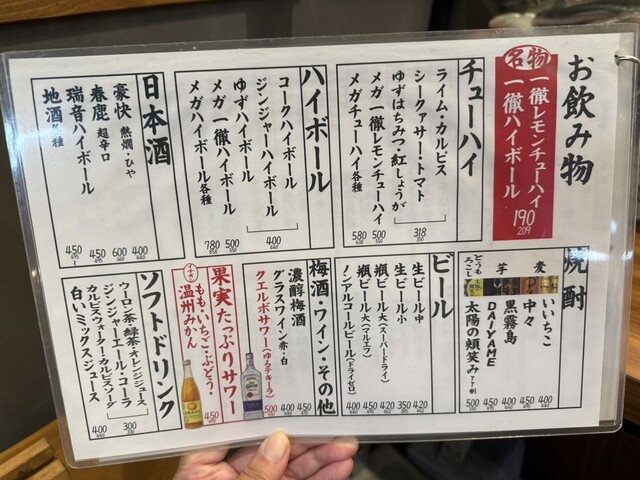 お飲み物
名物
一徹レモンチューハイ
一徹ハイボール
190
209
チューハイ
ライム・カルピス
シークァサー・トマト
ゆずはちみつ・紅しょうが
318
350
メガ 一徹レモンチューハイ
500
550
メガチューハイ各種
580
638
ハイボール
コークハイボール
ジンジャーハイボール
ゆずハイボール
400
440
メガ 一徹ハイボール
500
550
メガハイボール各種
780
858
日本酒
豪快 熱燗・ひや
400
440
春鹿 超辛口
600
660
瑞音ハイボール
450
495
地酒各種
450
495
〜
焼酎
麦
いいちこ
400
440
中々
450
495
芋
黒霧島
400
440
DAIYAME
450
495
とうもろこし
太陽の頬笑み
500
550
ビール
生ビール中
420
462
生ビール小
350
385
瓶ビール大(スーパードライ)
420
462
瓶ビール大(マルエフ)
450
495
ノンアルコールビール(ドライゼロ)
400
440
梅酒・ワイン・その他
濃醇梅酒
450
495
グラスワイン赤・白
400
440
クエルボサワー(ゆるテキーラ)
500
550
イチオシ
果実たっぷりサワー
もも・いちご・ぶどう・
温州みかん
450
495
ソフトドリンク
ウーロン茶・緑茶・オレンジジュース
ジンジャーエール・コーラ
カルピスウォーター・カルピスソーダ
300
330
白いミックスジュース
400
440